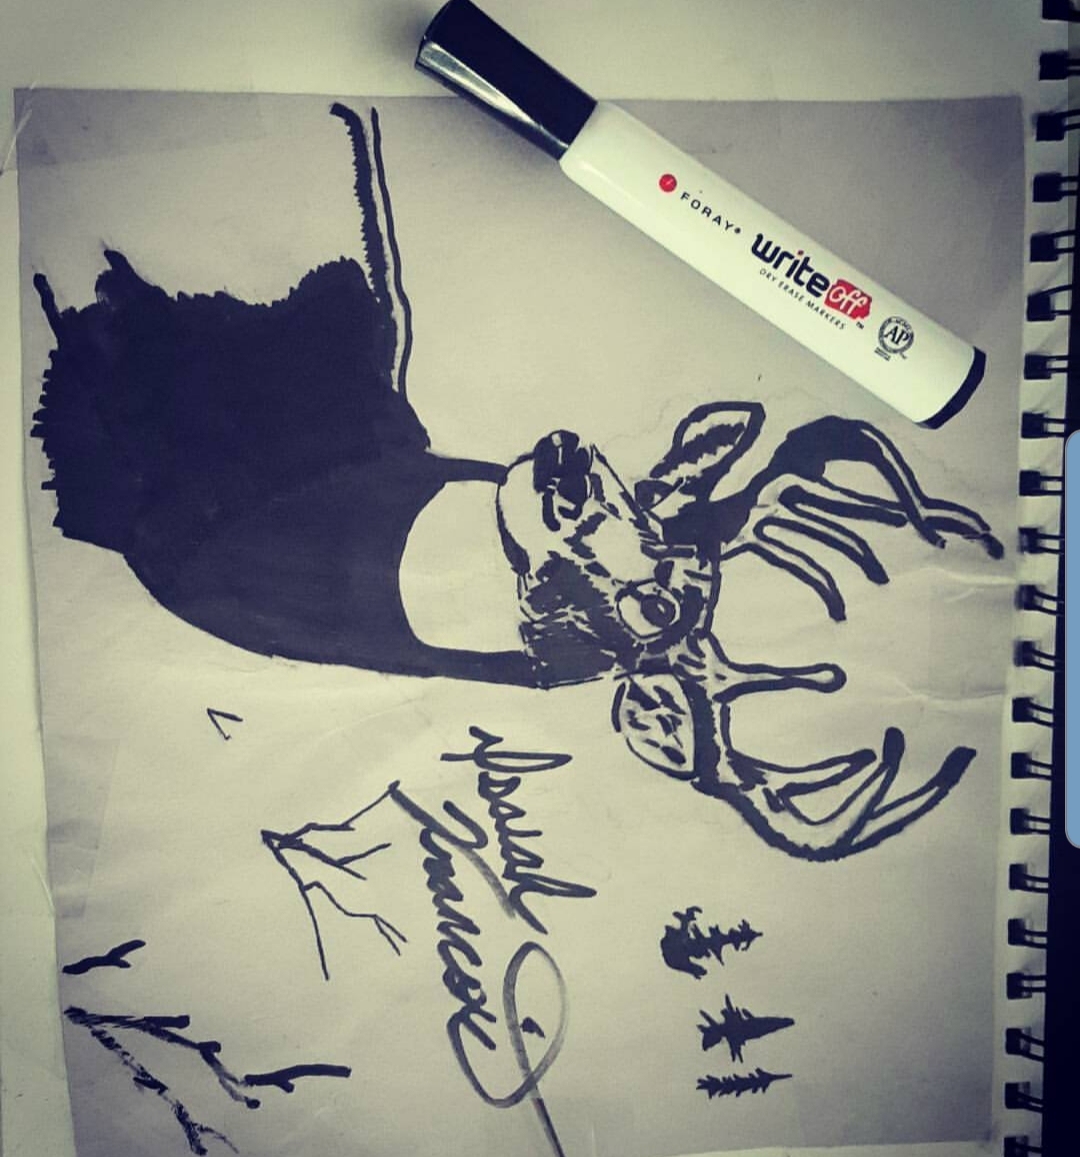 FORAY®
writeoff™
DRY ERASE MARKERS
AP
Isaiah